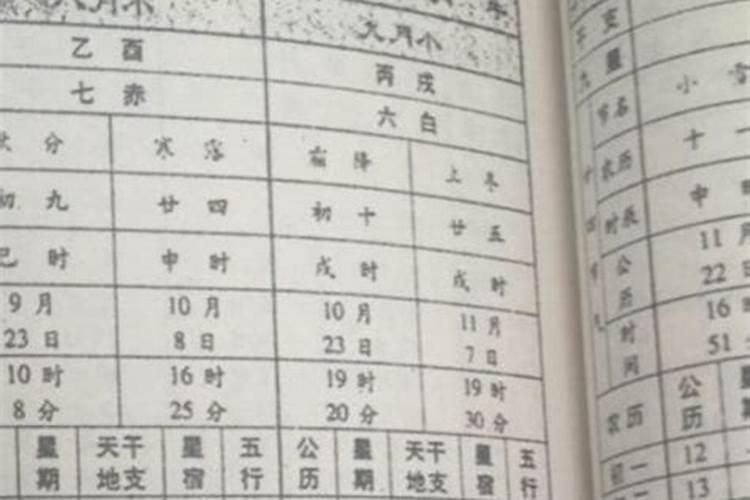 八月小 九月小
乙酉 丙戌
七赤 六白
分 寒露 霜降 立冬
初九 廿四 初十 廿五
巳时 申时 戌时 戌时
9月 10月 10月 11月
23日 8日 23日 7日
10时 16时 19时 19时
8分 25分 20分 30分
星期 天干地支 星宿 五行 公历 星期 天干地支 星宿 五行
干支
九星
节名 小雪
农历 十
时辰 申
公历 11月
22
时间 16
51
农历 公历
初一 12
13